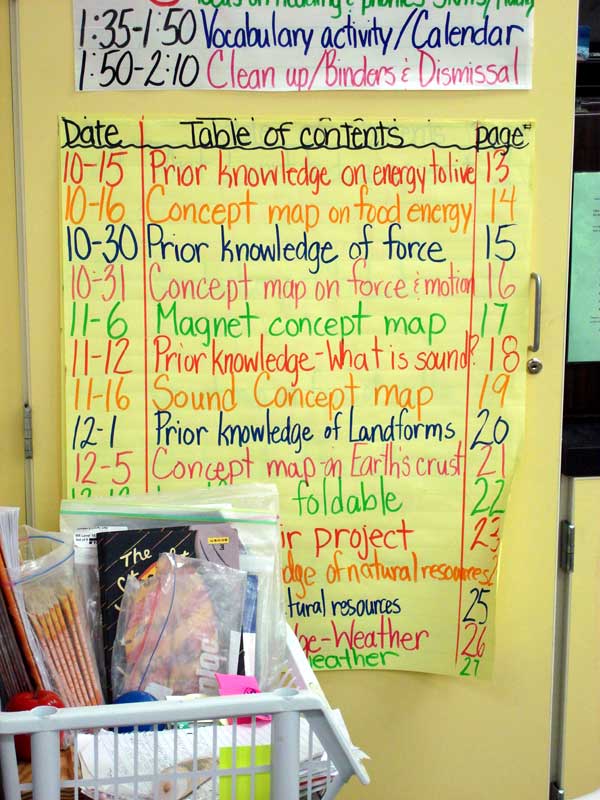 1:35-1:50 Vocabulary activity/Calendar
1:50-2:10 Clean up/Binders & Dismissal
Date Table of contents page#
10-15 Prior knowledge on energy to live 13
10-16 Concept map on food energy 14
10-30 Prior knowledge of force 15
10-31 Concept map on force & motion 16
11-6 Magnet concept map 17
11-12 Prior knowledge-What is sound? 18
11-16 Sound Concept map 19
12-1 Prior knowledge of Landforms 20
12-5 Concept map on Earth's crust 21
foldable 22
project 23
of natural resources
natural resources 25
-Weather 26
weather 27
The